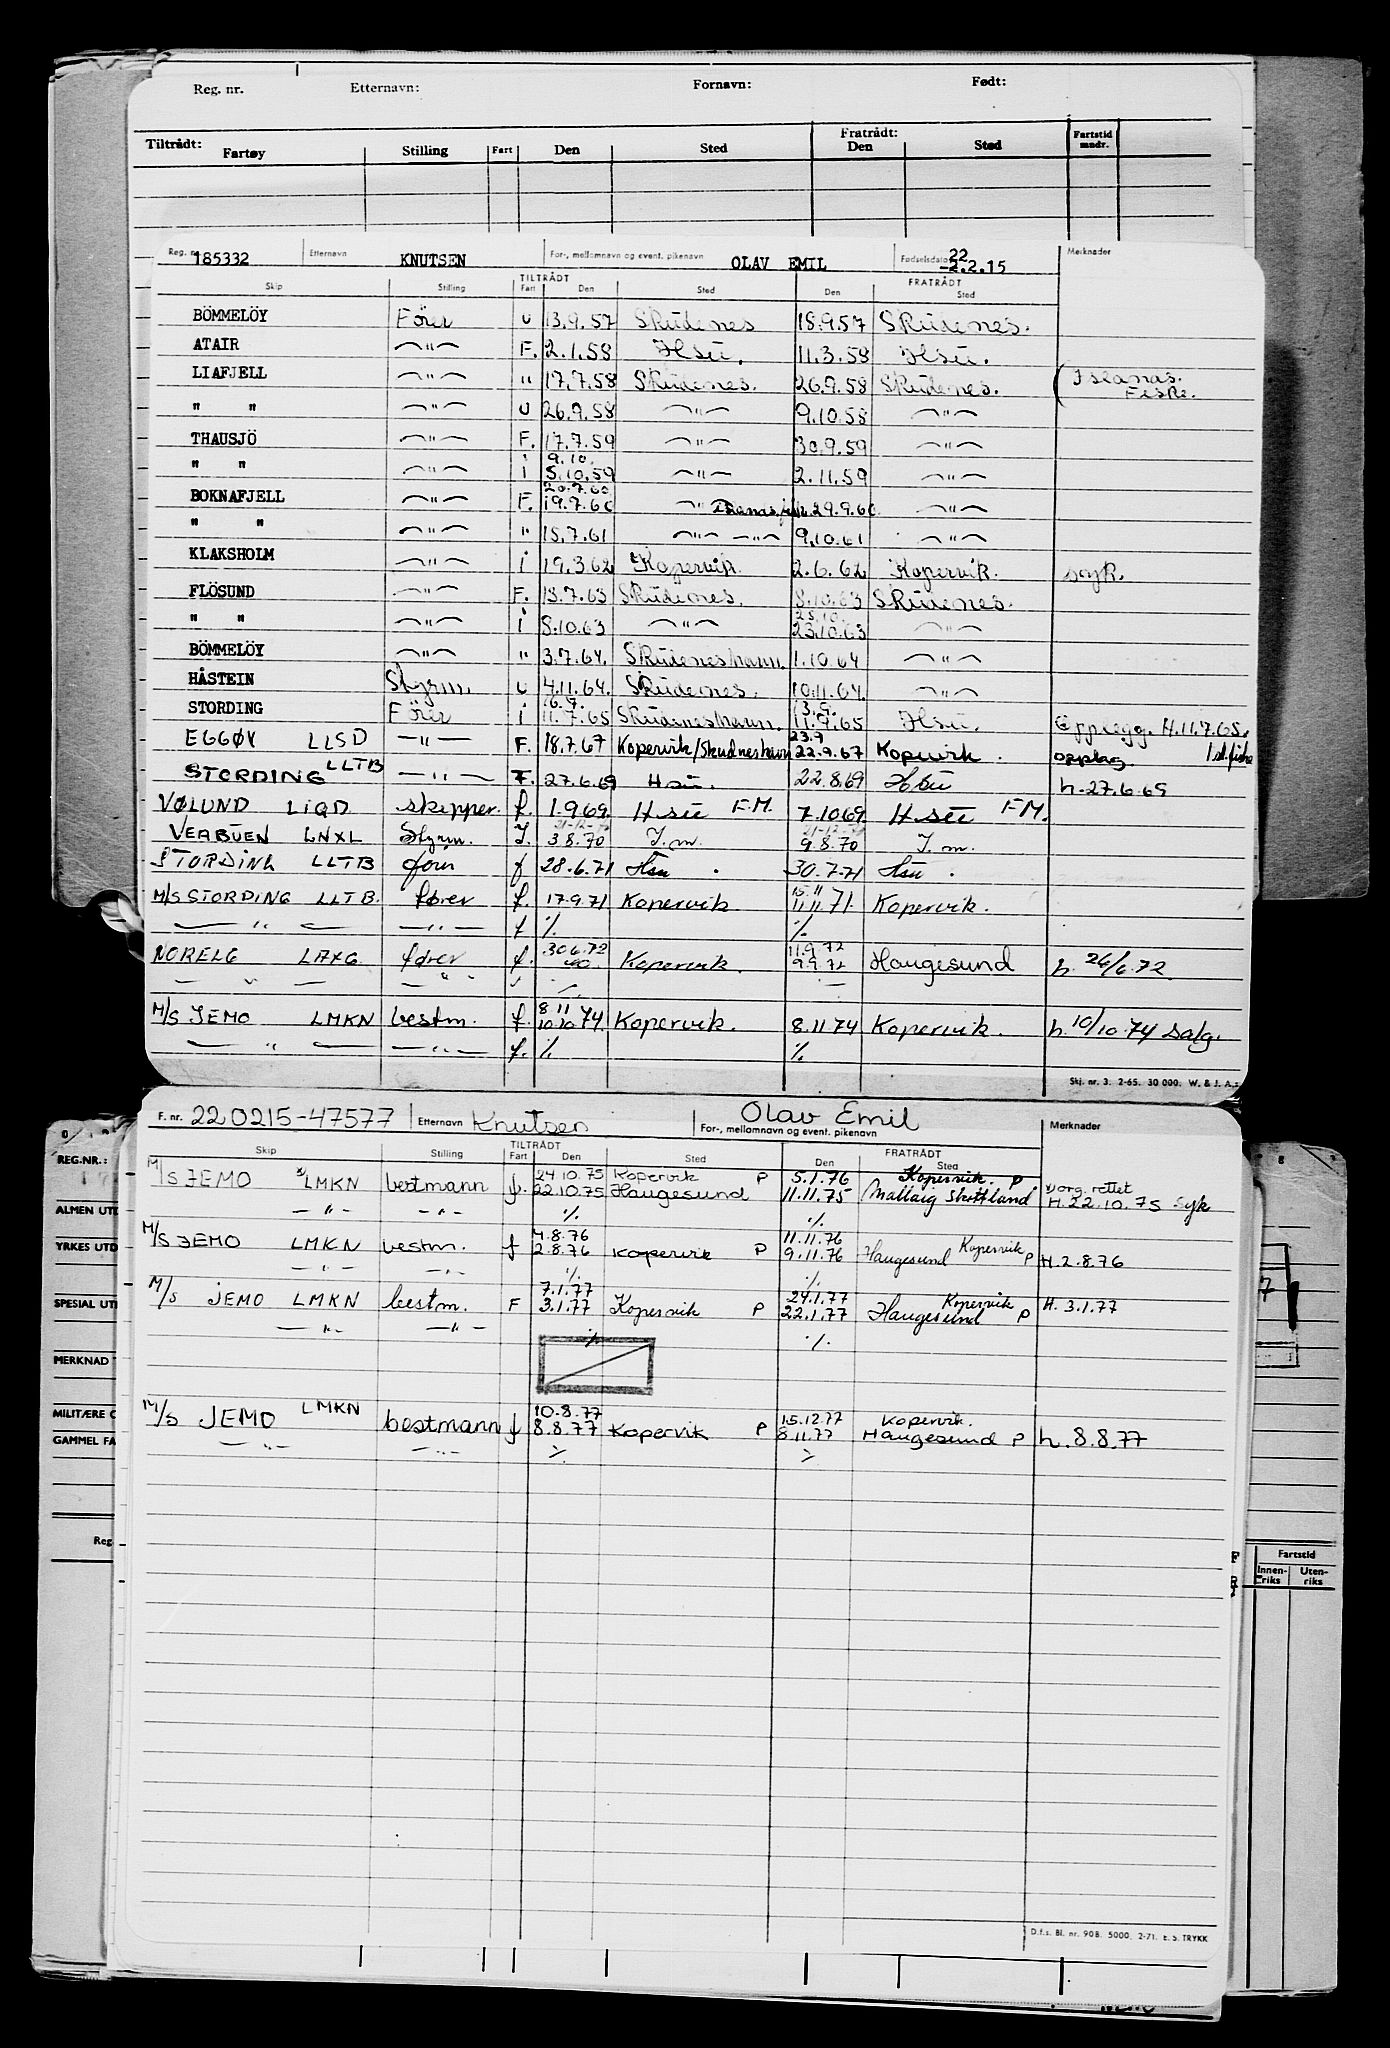 Reg. nr. Etternavn: Fornavn: Født:
Tiltrådt: Fratrådt: Fartstid
Fartøy Stilling Fart Den Sted Den Sted mndr.
Reg. nr. 185332 Etternavn KNUTSEN For-, mellomnavn og event. pikenavn OLAV EMIL Fødselsdato 22 2.2.15 Merknader
TILTRÅDT FRATRÅDT
Skip Stilling Fart Den Sted Den Sted
BÖMMELÖY Förer u 13.9.57 Skudenes 18.9.57 Skudenes.
ATAIR —"— F. 2.1.58 Hsu. 11.3.58 Hsu.
LIAFJELL —"— " 17.7.58 Skudenes. 26.9.58 Skudenes. ( Islands.
Fiske.
" " —"— u 26.9.58 —"— 9.10.58 —"—
THAUSJÖ —"— F. 17.7.59 —"— 30.9.59 —"—
9.10.
" " —"— i 5.10.59 —"— 2.11.59 —"—
20.7.60
BOKNAFJELL —"— F. 19.7.60 —"— 29.9.60 —"—
" " —"— " 15.7.61 —"— —"— 9.10.61 —"—
KLAKSHOLM —"— i 19.3.62 Kopervik. 2.6.62 Kopervik. syk.
FLÖSUND —"— F. 13.7.63 Skudenes. 8.10.63 Skudenes.
25.10.
" " —"— i 8.10.63 —"— 23.10.63 —"—
BÖMMELÖY —"— " 3.7.64. Skudeneshavn. 1.10.64 —"—
HÅSTEIN Styrm. u 4.11.64. Skudenes. 10.11.64. —"—
16.9. 13.9.
STORDING Förer i 11.7.65 Skudeneshavn. 11.9.65 Hsu. Opplegg. H.11.7.65.
23.9
EGGØY LLSD —"— F. 18.7.67 Kopervik/Skudneshavn 22.9.67 Kopervik. opplag. Isl.fiske
STORDING LLTB —"— F. 27.6.69 Hsu. 22.8.69 Hsu h.27.6.69
VØLUND LIQD skipper. f. 1.9.69. Hsu F.M. 7.10.69 Hsu F.M.
VERBUEN LNXL Styrm. I. 3.8.70 I.m. 9.8.70 I.m.
STORDING LLTB fører f 28.6.71 Hsu. 30.7.71 Hsu.
15.11
M/S STORDING LLTB. fører f. 17.9.71 Kopervik 11.11.71 Kopervik.
—"— —"— f ./. ./.
30.6.72 11.9.72
NORELG LAXG. fører f. Kopervik. 9.9.72 Haugesund h. 26/6.72
— " — — " — " ./. —
8.11
M/S JEMO LMKN bestm. f. 10.10.74 Kopervik. 8.11.74 Kopervik. h.10/10.74 Salg.
—"— —"— f. ./. ./.
Skj. nr. 3. 2-65. 30 000. W. & J. A.s
F. nr. 220215-47577 Etternavn Knutsen Olav Emil
For-, mellomnavn og event. pikenavn Merknader
TILTRÅDT FRATRÅDT
Skip Stilling Fart Den Sted Den Sted
24.10.75 Kopervik P 5.1.76 Kopervik. P. x) org. rettet
M/S JEMO x) LMKN bestmann f. 22.10.75 Haugesund 11.11.75 Mallaig Skottland H.22.10.75 Syk
—"— —"— ./. ./.
4.8.76 11.11.76
M/S JEMO LMKN bestm. f 2.8.76 Kopervik P 9.11.76 Haugesund Kopervik P H.2.8.76
—"— —"— ./. ./.
7.1.77 24.1.77 Kopervik
M/S JEMO LMKN bestm. F 3.1.77 Kopervik P 22.1.77 Haugesund P H. 3.1.77
—"— —"— ./. ./.
10.8.77 15.12.77 Kopervik.
M/S JEMO LMKN bestmann f 8.8.77 Kopervik P 8.11.77 Haugesund P h.8.8.77
—"— —"— ./. ./.
D.f.s. Bl. nr. 90B. 5000. 2-71. E. S. TRYKK
REG.NR.:
ALMEN UTD
YRKES UTD
SPESIAL UT
MERKNAD
MILITÆRE
GAMMEL FA
Reg
7
Fartstid
Innen-riks Uten-riks